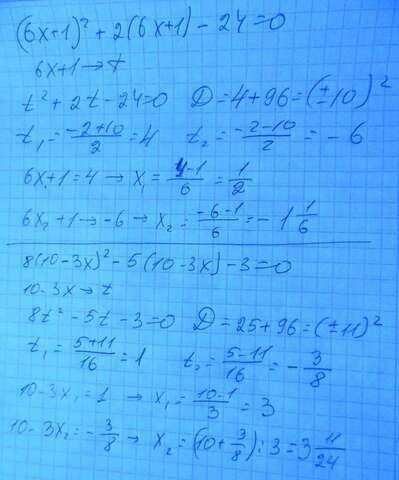 (6x+1)² + 2(6x+1) - 24 = 0
6x+1 → t
t² + 2t - 24 = 0 D = 4 + 96 = (±10)²
t₁ = (-2+10)/2 = 4 t₂ = (-2-10)/2 = -6
6x₁+1 = 4 → x₁ = (4-1)/6 = 1/2
6x₂+1 → -6 → x₂ = (-6-1)/6 = -1 1/6
8(10-3x)² - 5(10-3x) - 3 = 0
10-3x → t
8t² - 5t - 3 = 0 D = 25 + 96 = (±11)²
t₁ = (5+11)/16 = 1 t₂ = (5-11)/16 = -3/8
10-3x₁ = 1 → x₁ = (10-1)/3 = 3
10-3x₂ = -3/8 → x₂ = (10+3/8):3 = 3 11/24